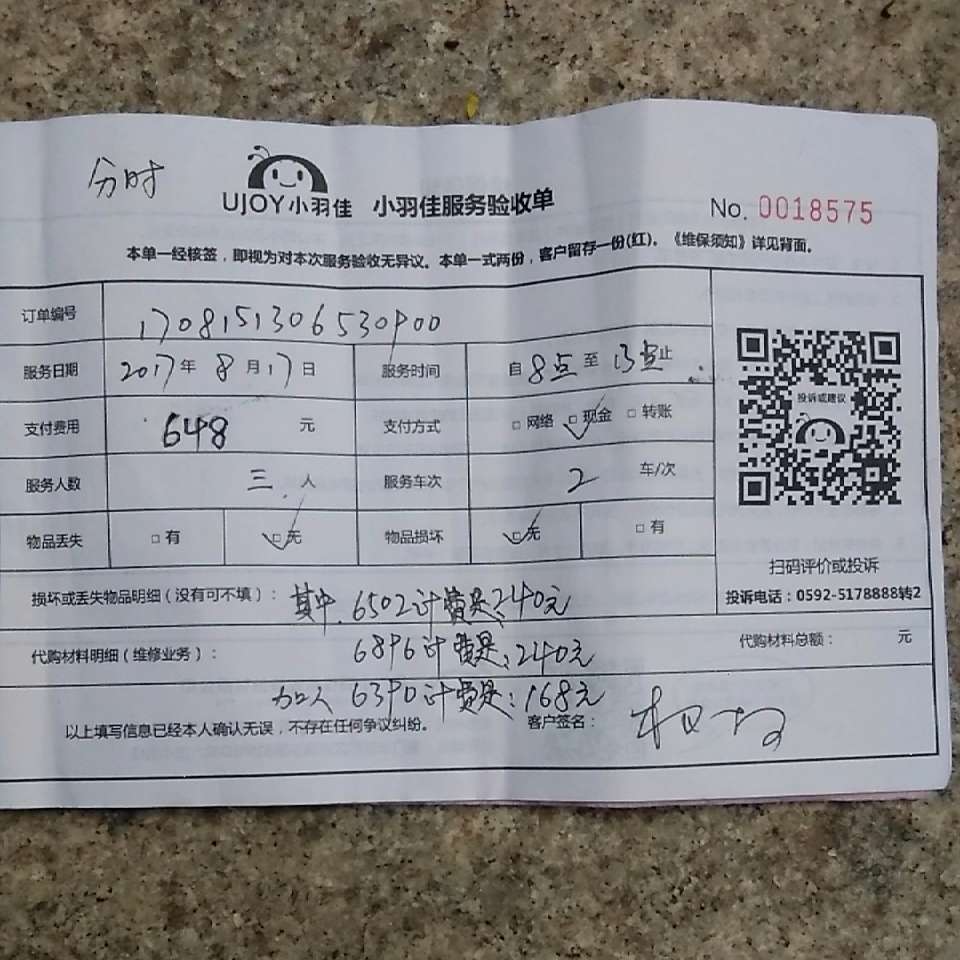 分时
UJOY小羽佳 小羽佳服务验收单
No. 0018575
本单一经核签，即视为对本次服务验收无异议。本单一式两份，客户留存一份(红)。《维保须知》详见背面。
订单编号 1708151306530900
服务日期 2017年8月17日 服务时间 自8点至13点止
投诉或建议
支付费用 648 元 支付方式 □网络 □现金 □转账
服务人数 三 人 服务车次 2 车/次
物品丢失 □有 □无 物品损坏 □无 □有
扫码评价或投诉
投诉电话：0592-5178888转2
损坏或丢失物品明细（没有可不填）： 其中. 6502计费是:240元
代购材料明细（维修业务）： 6896计费是:240元 代购材料总额： 元
加人 6390计费是:168元
以上填写信息已经本人确认无误，不存在任何争议纠纷。 客户签名：